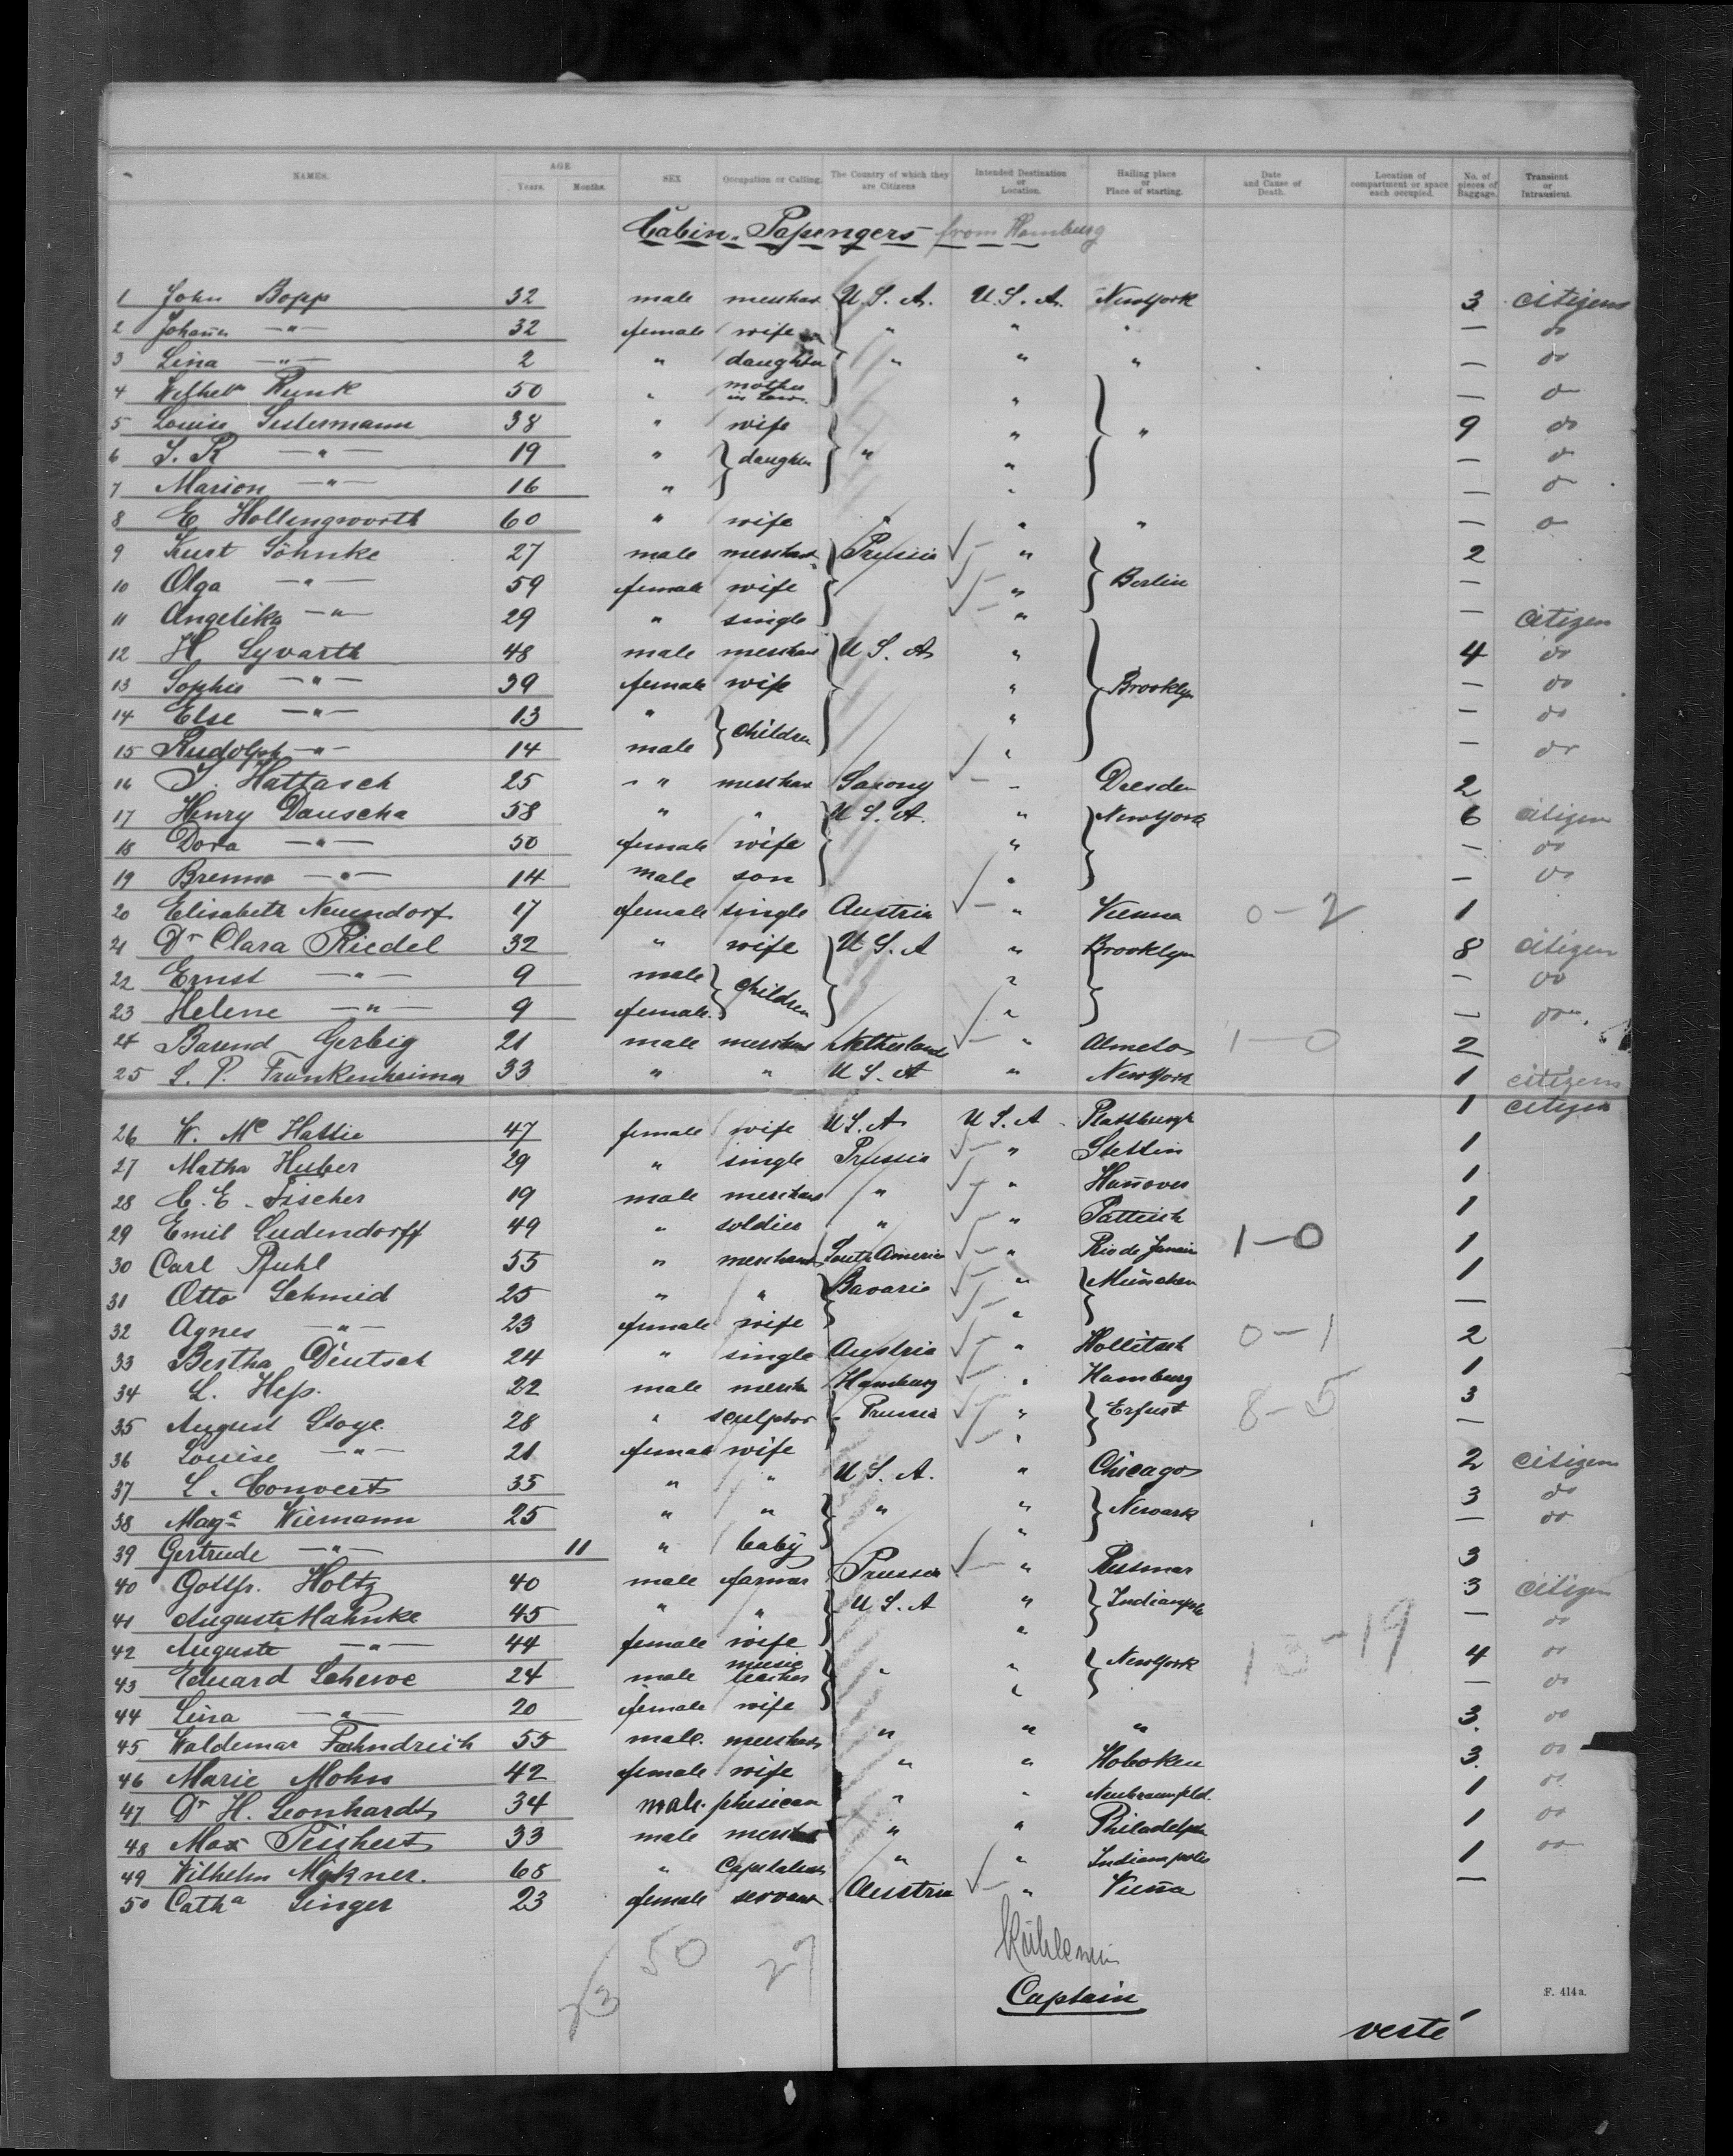 NAMES. AGE Years. Months. SEX Occupation or Calling. The Country of which they are Citizens Intended Destination or Location. Hailing place or Place of starting. Date and Cause of Death. Location of compartment or space each occupied. No. of pieces of Baggage. Transient or Intransient.
Cabin-Passengers from Hamburg
1 John Bopp 32 male merchan U.S.A. U.S.A. New York 3 citizens
2 Johanna -"- 32 female wife " " " — do
3 Lina -"- 2 " daughter " " " — do
4 Wilhelm Runk 50 " mother in Law " — do
5 Louise Sestermann 38 " wife " " " 9 do
6 S. R -"- 19 " daughter " — do
7 Marion -"- 16 " " — do
8 E Hollingworth 60 " wife " " " — do
9 Kurt Söhnke 27 male merchan Prussia " Berlin 2
10 Olga -"- 59 female wife " —
11 Angelika -"- 29 " single " — citizen
12 H Syvarth 48 male merchan U.S.A " Brooklyn 4 do
13 Sophie -"- 39 female wife " — do
14 Else -"- 13 " children " — do
15 Rudolph -"- 14 male " — do
16 Hattasch 25 " merchan Saxony " Dresden 2
17 Henry Dauscha 58 " " U.S.A. " New York 6 citizen
18 Dora -"- 50 female wife " — do
19 Brenno -"- 14 male son " — do
20 Elisabeth Neuendorf 17 female single Austria " Vienna 0-2 1
21 Dr Clara Riedel 32 " wife U.S.A " Brooklyn 8 citizen
22 Ernst -"- 9 male children " — do
23 Helene -"- 9 female " — do
24 Barend Gerbig 21 male merchan Netherland " Almelo 1-0 2
25 S. P. Frankenheimer 33 " " U.S.A " New York 1 citizens
26 W. Mc Hattie 47 female wife U.S.A U.S.A Plattsburgh 1 citizen
27 Matha Huber 29 " single Prussia " Stettin 1
28 C. E. Fischer 19 male merchan " " Hanover 1
29 Emil Ludendorff 49 " soldier " " 1
30 Carl Pfuhl 55 " merchan South America " Rio de Janeiro 1-0 1
31 Otto Schmid 25 " " Bavaria " München 1
32 Agnes -"- 23 female wife " —
33 Bertha Deutsch 24 " single Austria " Hollitsch 0-1 2
34 L. Hess. 22 male merch Hamburg " Hamburg 1
35 August Stoye 28 " sculptor Prussia " Erfurt 8-5 3
36 Louise -"- 21 female wife " —
37 L. Convert 35 " " U.S.A. " Chicago 2 citizen
38 Maga Wiemann 25 " " " " Newark 3 do
39 Gertrude -"- 11 " baby " — do
40 Gottfr. Holtz 40 male farmer Prussia " 3
41 August Mahnke 45 " " U.S.A " Indianpls 3 citizen
42 Auguste -"- 44 female wife " — do
43 Eduard Schewe 24 male music teacher " " New York 13-19 4 do
44 Lina -"- 20 female wife " — do
45 Waldemar Faehndrich 55 male. merchan " " " 3 do
46 Marie Mohn 42 female wife " " Hoboken 3 do
47 Dr H. Leonhardt 34 male. phisican " " Neubraunfeld 1 do
48 Max Teichert 33 male merchan " " Philadelph 1 do
49 Wilhelm 68 " Capitalist " " Indianapolis 1 do
50 Catha Singer 23 female servant Austria " Viena —
50 27
23
Captain
F. 414 a.